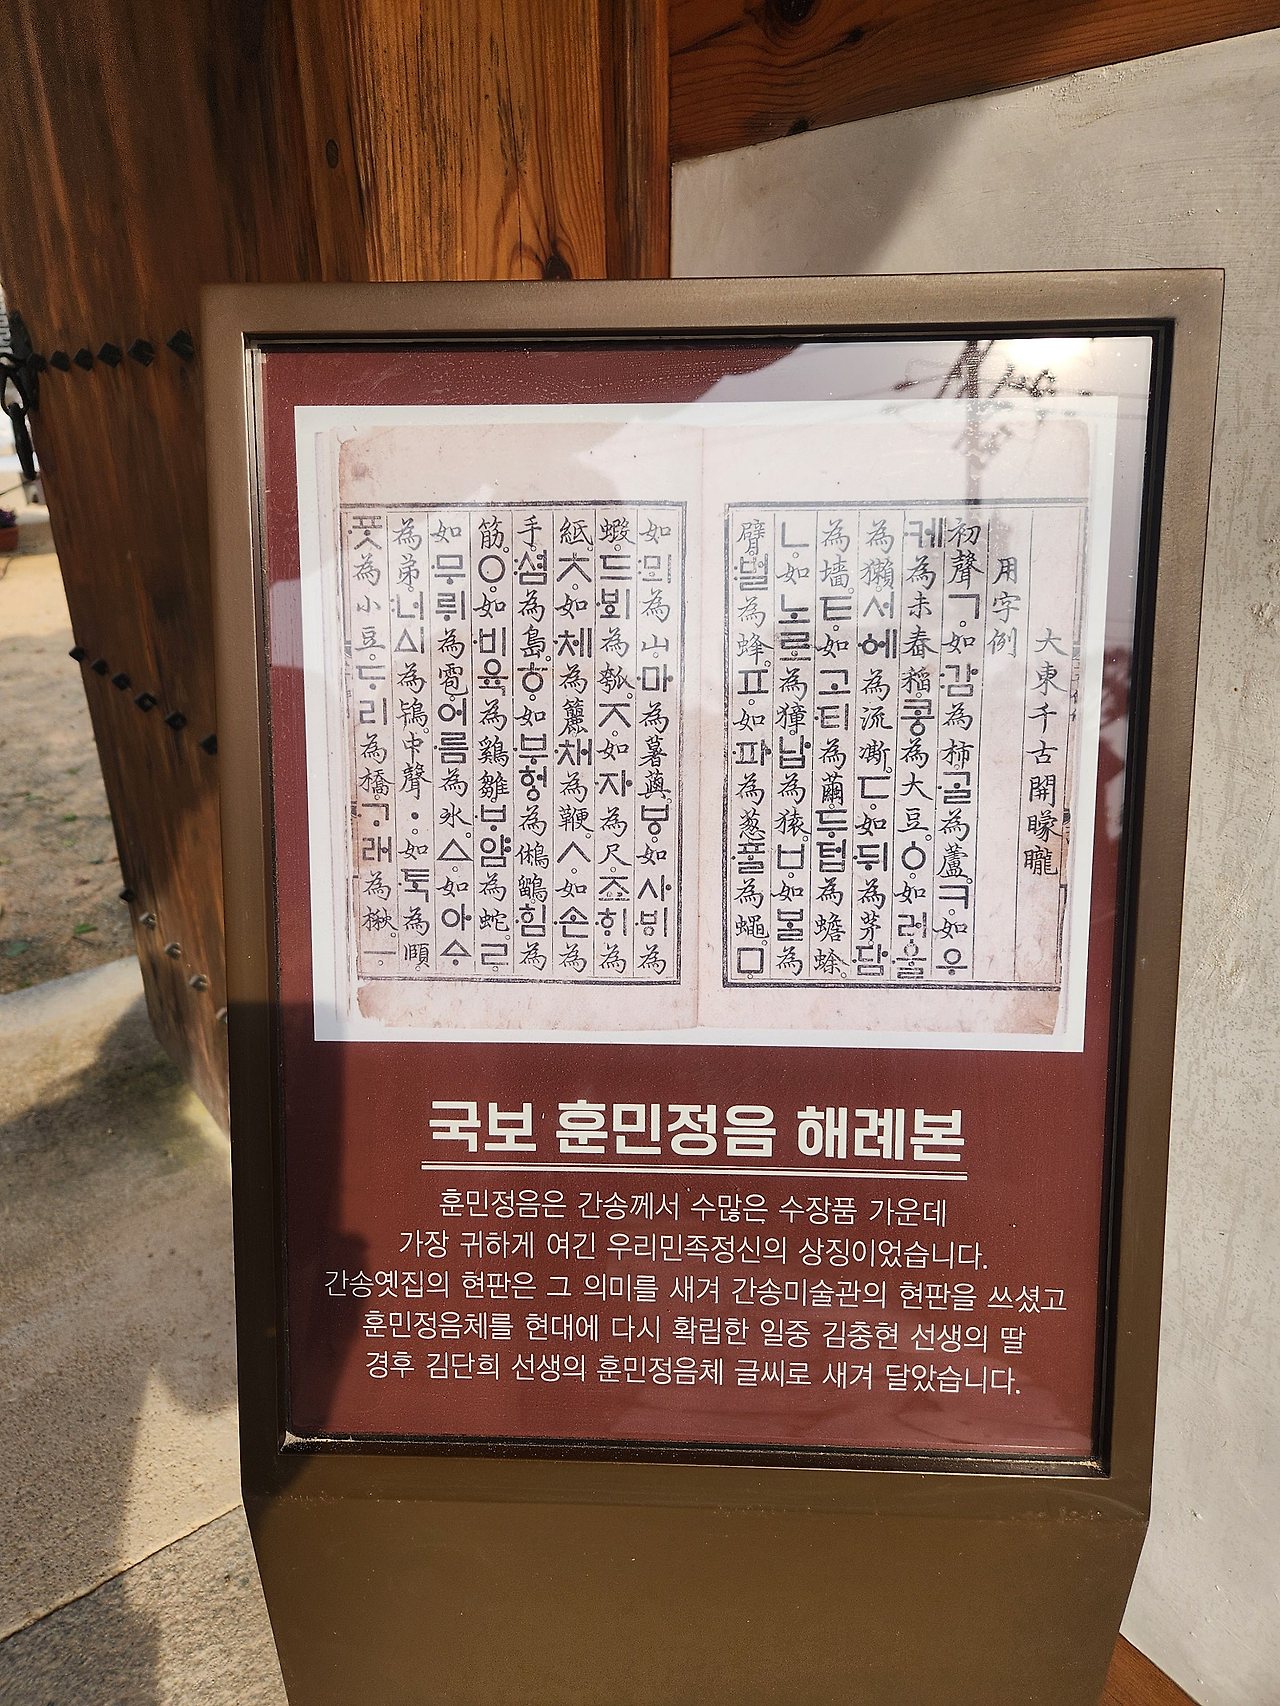 大東千古開矇矓
用字例
初聲ㄱ如감為柿ᄀᆞᆯ為蘆ㅋ如우
케為未舂稻콩為大豆ㆁ如러울
為獺서에為流凘ㄷ如뒤為茅담
為墻ㅌ如고티為繭두텁為蟾蜍
ㄴ如노로為獐납為猿ㅂ如ᄇᆞᆯ為
臂벌為蜂ㅍ如파為葱ᄑᆞᆯ為蠅ㅁ
如뫼為山마為薯藇ㅸ如사ᄫᅵ為
蝦드ᄫᅴ為瓠ㅈ如자為尺죠ᄒᆡ為
紙ㅊ如체為籭채為鞭ㅅ如손為
手셤為島ㅎ如부헝為鵂鶹힘為
筋ㅇ如비육為鷄雛ᄇᆞ얌為蛇ㄹ
如무뤼為雹어름為氷ㅿ如아ᅀᆞ
為弟너ᅀᅵ為鴇中聲ㆍ如ᄐᆞᆨ為頤
ᄑᆞᆺ為小豆ᄃᆞ리為橋ᄀᆞ래為楸ㅡ
국보 훈민정음 해례본
훈민정음은 간송께서 수많은 수장품 가운데
가장 귀하게 여긴 우리민족정신의 상징이었습니다.
간송옛집의 현판은 그 의미를 새겨 간송미술관의 현판을 쓰셨고
훈민정음체를 현대에 다시 확립한 일중 김충현 선생의 딸
경후 김단희 선생의 훈민정음체 글씨로 새겨 달았습니다.